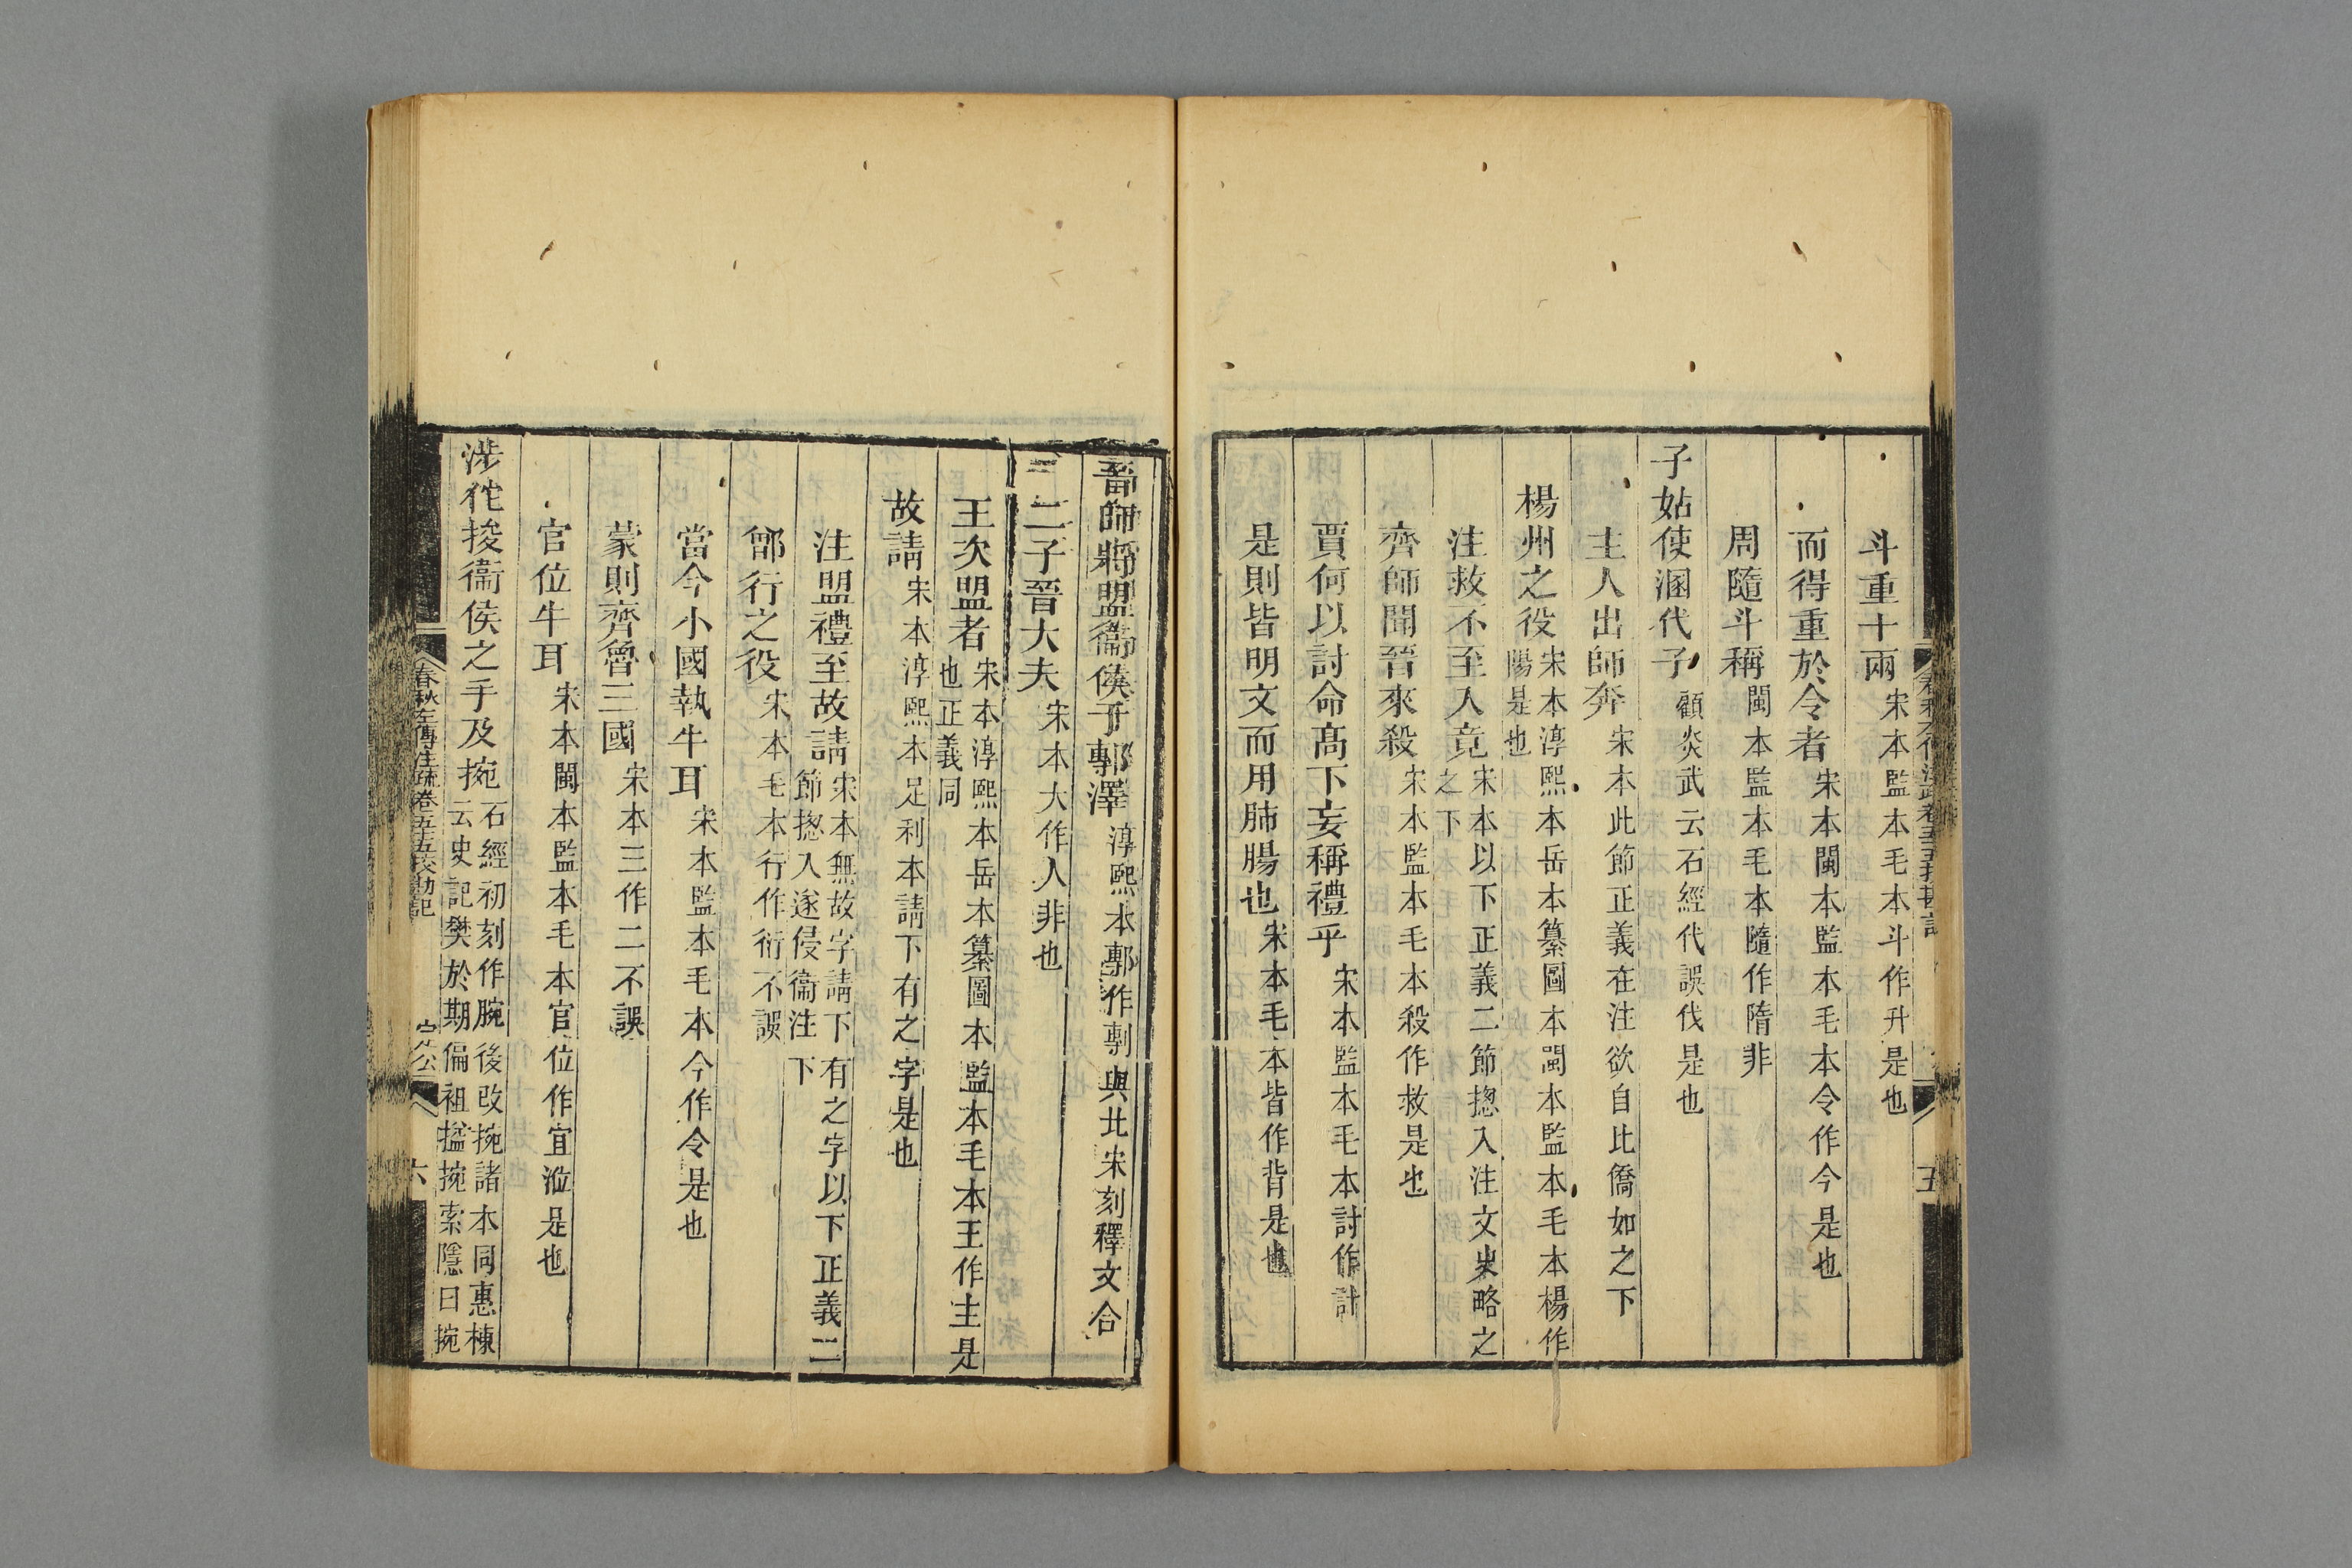 斗重十兩宋本監本毛本斗作升是也
而得重於令者宋本閩本監本毛本令作今是也
周隨斗稱閩本監本毛本隨作隋非
子姑使溷代子顧炎武云石經代誤伐是也
主人出師奔宋本此節正義在注欲自比僑如之下
楊州之役宋本淳熙本岳本纂圖本閩本監本毛本楊作
陽是也
注救不至入竟宋本以下正義二節摠入注文史略之
之下
齊師聞晉來殺宋本監本毛本殺作救是也
賈何以討命高下妄稱禮乎宋本監本毛本討作計
是則皆明文而用肺腸也宋本毛本皆作背是也
五
晉師將盟衞侯于鄟澤淳熙本鄟作剸與北宋刻釋文合
二子晉大夫宋本大作人非也
王次盟者宋本淳熙本岳本纂圖本監本毛本王作主是
也正義同
故請宋本淳熙本足利本請下有之字是也
注盟禮至故請宋本無故字請下有之字以下正義二
節摠入遂侵衞注下
鄫行之役宋本毛本行作衍不誤
當今小國執牛耳宋本監本毛本今作令是也
蒙則齊魯三國宋本三作二不誤
官位牛耳宋本閩本監本毛本官位作宜涖是也
涉佗捘衞侯之手及捥石經初刻作腕後改捥諸本同惠棟
云史記樊於期偏袒搤捥索隱曰捥
春秋左傳注疏卷五十五校勘記
定公
六